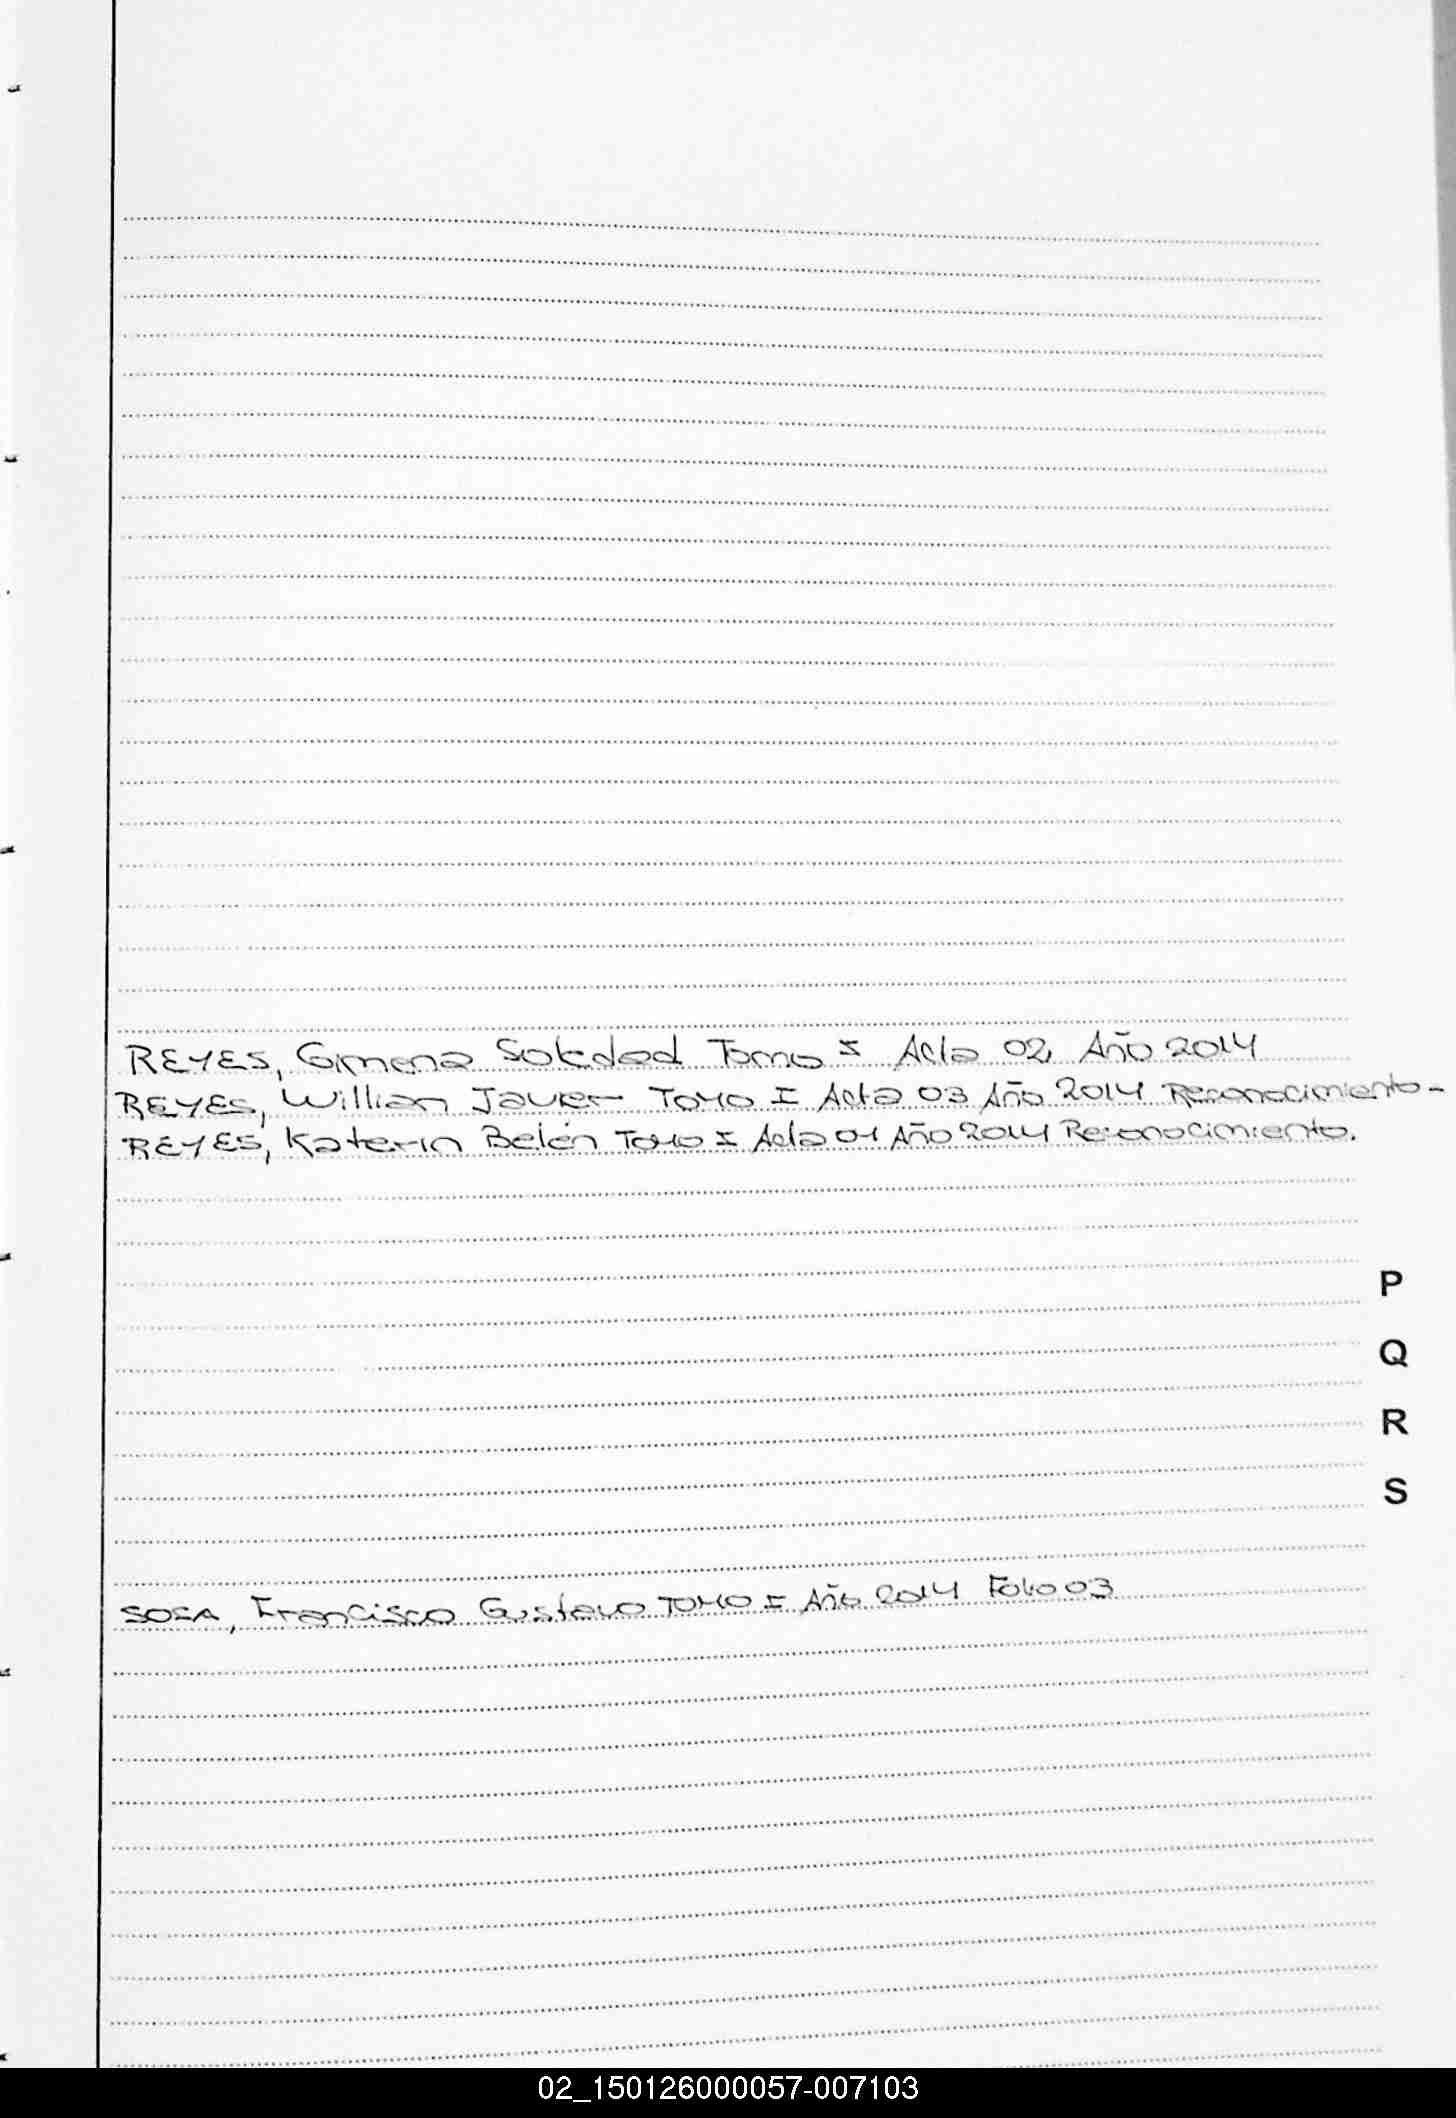 REYES, Gimena Soledad Tomo I Acta 02 Año 2014
REYES, Willian Javier TOMO I Acta 03 Año 2014 Reconocimiento-
REYES, Katerin Belén TOMO I Acta 01 Año 2014 Reconocimiento.
P
Q
R
S
SOSA, Francisco Gustavo TOMO I Año 2014 Folio 03
02_150126000057-007103